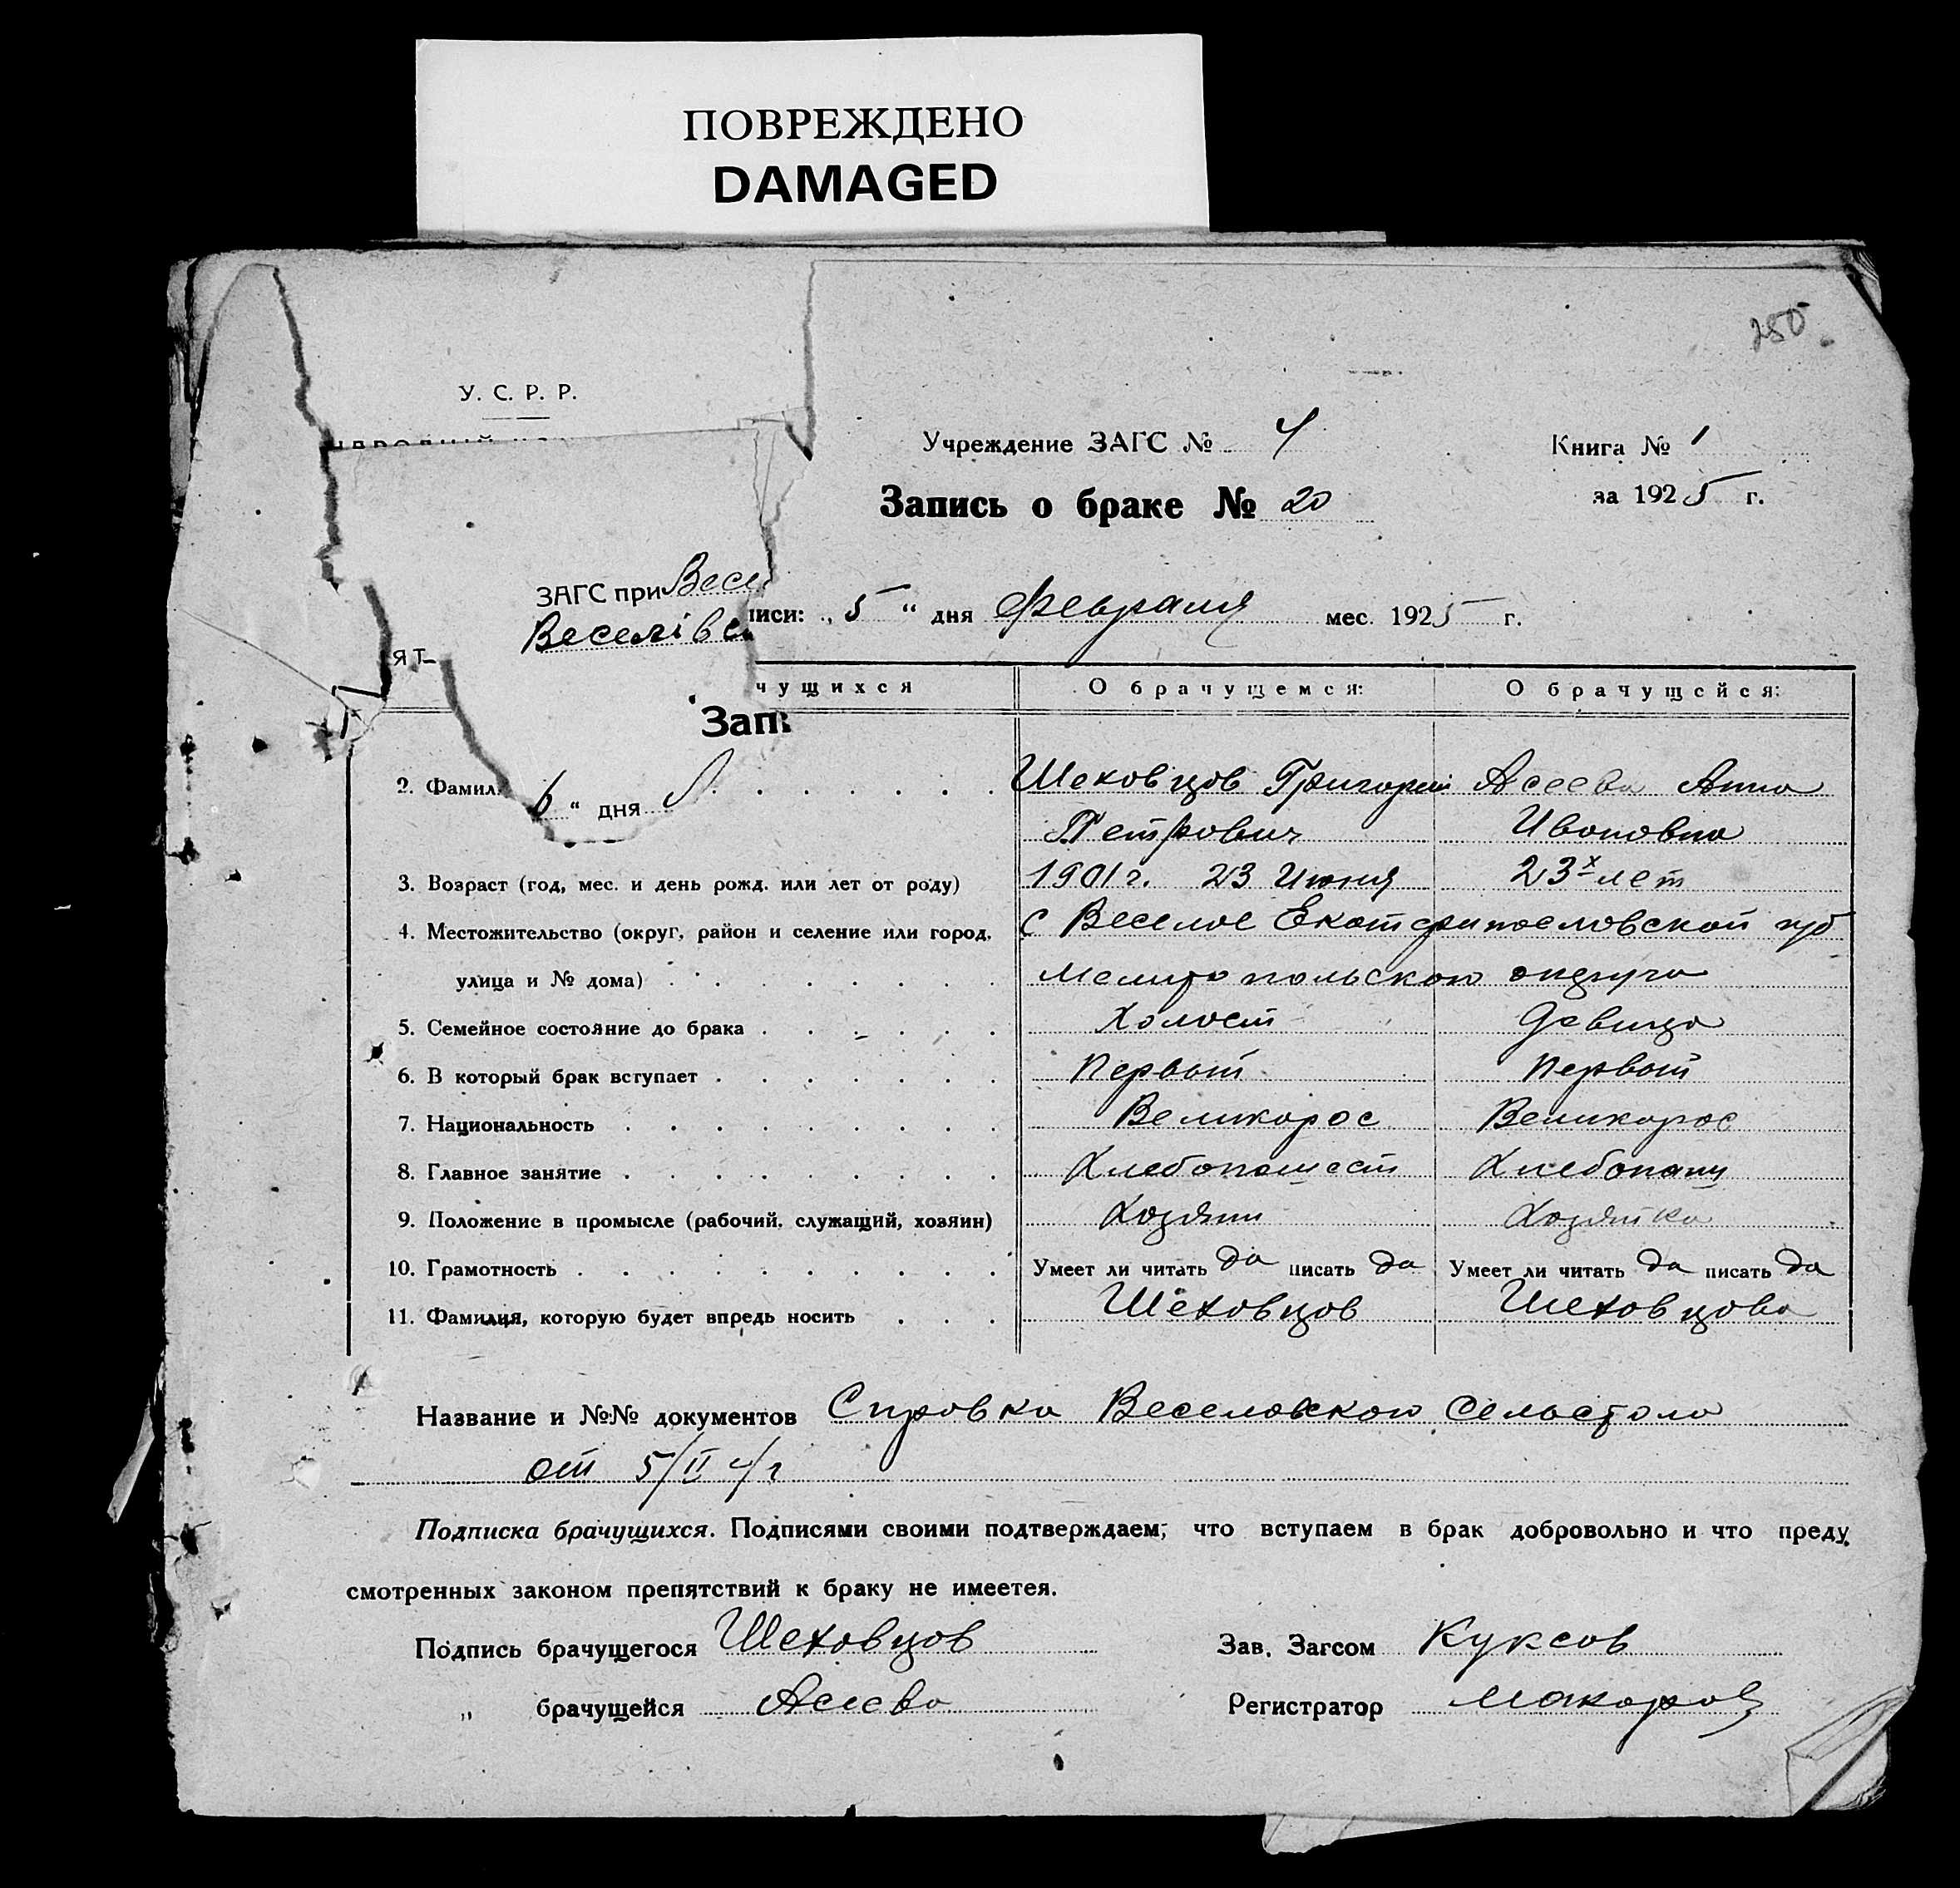 ПОВРЕЖДЕНО
DAMAGED
250
У. С. Р. Р.
Учреждение ЗАГС № 4
Книга № 1
Запись о браке № 20
за 1925 г.
ЗАГС при Весе
Веселівс
иси: „ 5 “ дня Февраля мес. 1925 г.
ЯТ-
чущихся О брачущемся: О брачущейся:
Зап
2. Фамил Шеховцов Григорий Асеева Анна
6 “ дня
Петрович Ивановна
3. Возраст (год, мес. и день рожд. или лет от роду) 1901 г. 23 Июня 23х лет
4. Местожительство (округ, район и селение или город, с Веселое Екатеринославской губ
улица и № дома) Мелитопольского округа
5. Семейное состояние до брака Холост Девица
6. В который брак вступает Первый Первый
7. Национальность Великорос Великорос
8. Главное занятие Хлебопашест Хлебопаш
9. Положение в промысле (рабочий, служащий, хозяин) Хозяин Хозяйка
10. Грамотность Умеет ли читать да писать да Умеет ли читать да писать да
11. Фамилия, которую будет впредь носить Шеховцов Шеховцова
Название и №№ документов Справка Веселовского
от 5/II с/г
Подписка брачущихся. Подписями своими подтверждаем, что вступаем в брак добровольно и что преду
смотренных законом препятствий к браку не имеетея.
Подпись брачущегося Шеховцов Зав. Загсом Куксов
„ брачущейся Асеева Регистратор Макаров